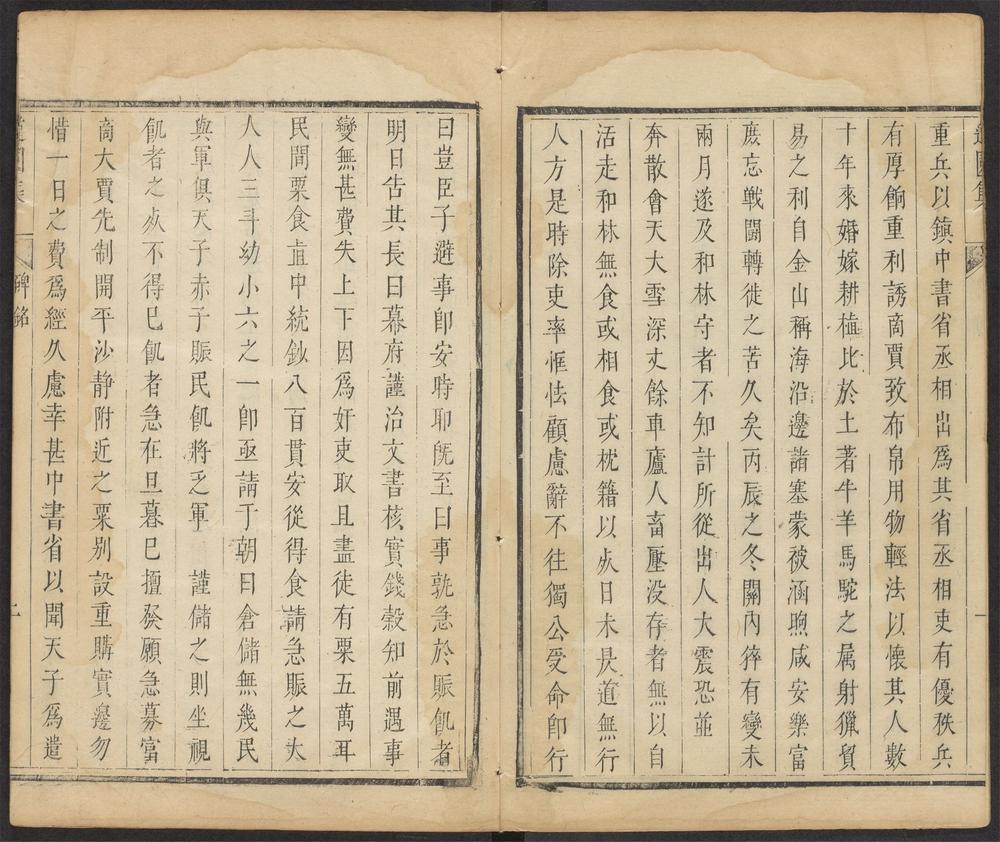 道園集
一
重兵以鎮中書省丞相出為其省丞相吏有優秩兵
有厚餉重利誘商賈致布帛用物輕法以懷其人數
十年來婚嫁耕植比於土著牛羊馬駝之属射獵貿
易之利自金山稱海沿邊諸塞蒙被涵煦咸安樂富
庶忘戦闘轉徙之苦久矣丙辰之冬關內猝有變未
兩月遂及和林守者不知計所從出人大震恐並
奔散會天大雪深丈餘車廬人畜壓没存者無以自
活走和林無食或相食或枕籍以死日未昃道無行
人方是時除吏率恇怯顧慮辭不往獨公受命即行
曰豈臣子避事即安時耶旣至曰事孰急於賑飢者
明日告其長曰幕府謹治文書核實錢穀知前遇事
變無甚費失上下因為奸吏取且盡徒有粟五萬耳
民間粟食直中統鈔八百貫安從得食請急賑之大
人人三斗幼小六之一即亟請于朝曰倉儲無幾民
與軍俱天子赤子賑民飢將乏軍 謹儲之則坐視
飢者之死不得已飢者急在旦暮已擅發願急募富
商大賈先制開平沙静附近之粟别設重購實邊勿
惜一日之費爲經久慮幸甚中書省以聞天子爲遣
道園集
碑銘
二